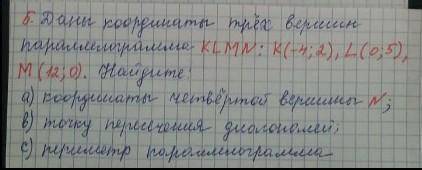 5. Даны координаты трёх вершин
параллелограмма KLMN: K(-4;2), L(0;5),
M(12;0). Найдите:
a) координаты четвёртой вершины N;
b) точку пересечения диагоналей;
c) периметр параллелограмма